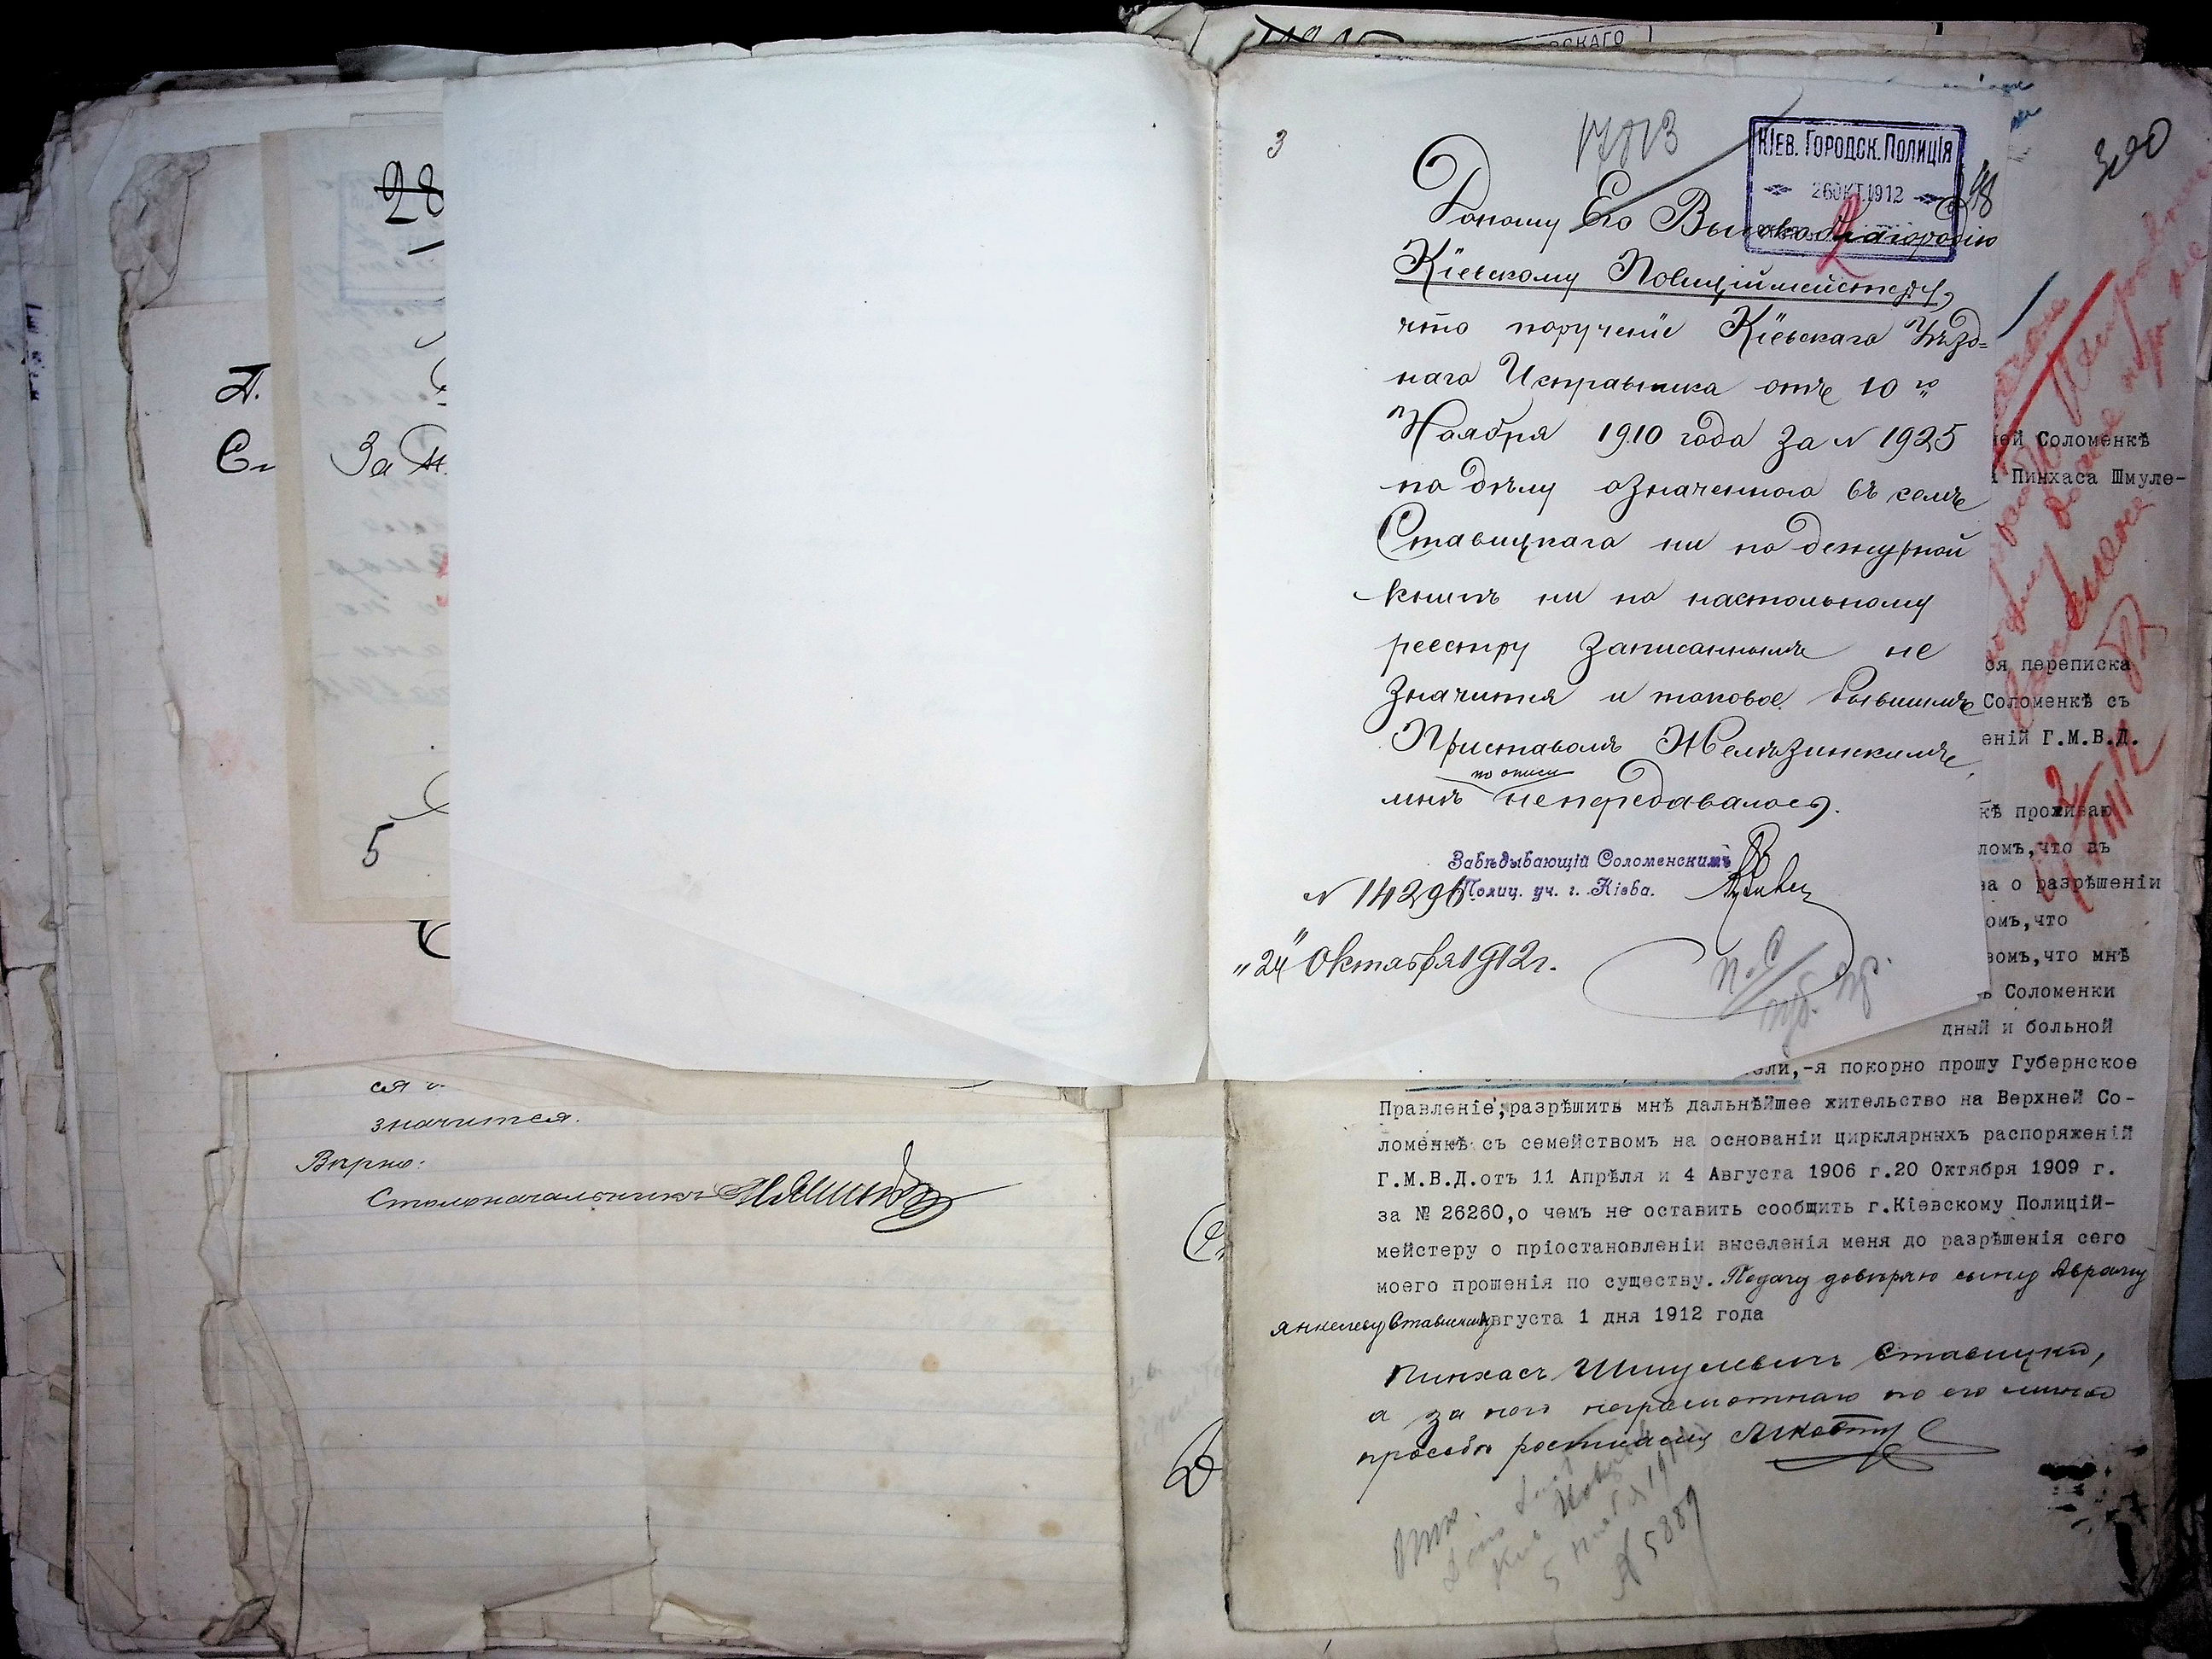 28
А.
За
5
ся
значится.
Вѣрно:
Столоначальникъ
СКАГО
3
17813
300
КІЕВ. ГОРОДСК. ПОЛИЦІЯ
26 ОКТ. 1912
Доношу Его Высокоблагородію
Кіевскому Полиціймейстеру,
что порученіе Кіевскаго Уѣзд=
наго Исправника отъ 10 го
Ноября 1910 года за № 1925
по дѣлу означеннаго въ семъ
Ставицкаго ни по дежурной
книгѣ ни по настольному
реестру записаннымъ не
значится и таковое бывшимъ
Приставомъ Желѣзинскимъ
по описи
мнѣ непередавалось.
Завѣдывающій Соломенскимъ
Полиц. уч. г. Кіева.
№ 14296
"24" Октября 1912 г.
ей Соломенкѣ
Пинхаса Шмуле-
ся переписка
Соломенкѣ съ
еній Г.М.В.Д.
кѣ проживаю
ломъ,что въ
ва о разрѣшеніи
омъ,что
вомъ,что мнѣ
ъ Соломенки
дный и больной
ели,-я покорно прошу Губернское
Правленіе,разрѣшить мнѣ дальнѣйшее жительство на Верхней Со-
ломенкѣ съ семействомъ на основаніи циркулярныхъ распоряженій
Г.М.В.Д.отъ 11 Апрѣля и 4 Августа 1906 г.20 Октября 1909 г.
за № 26260,о чемъ не оставить сообщить г.Кіевскому Полицій-
мейстеру о пріостановленіи выселенія меня до разрѣшенія сего
моего прошенія по существу. Подачу довѣряю сыну Авраму
Янкелеву Ставицкому Августа 1 дня 1912 года
Пинхасъ Шмулевичъ Ставицкій,
а за него неграмотнаго по его личной
просьбѣ росписался
№ 5889